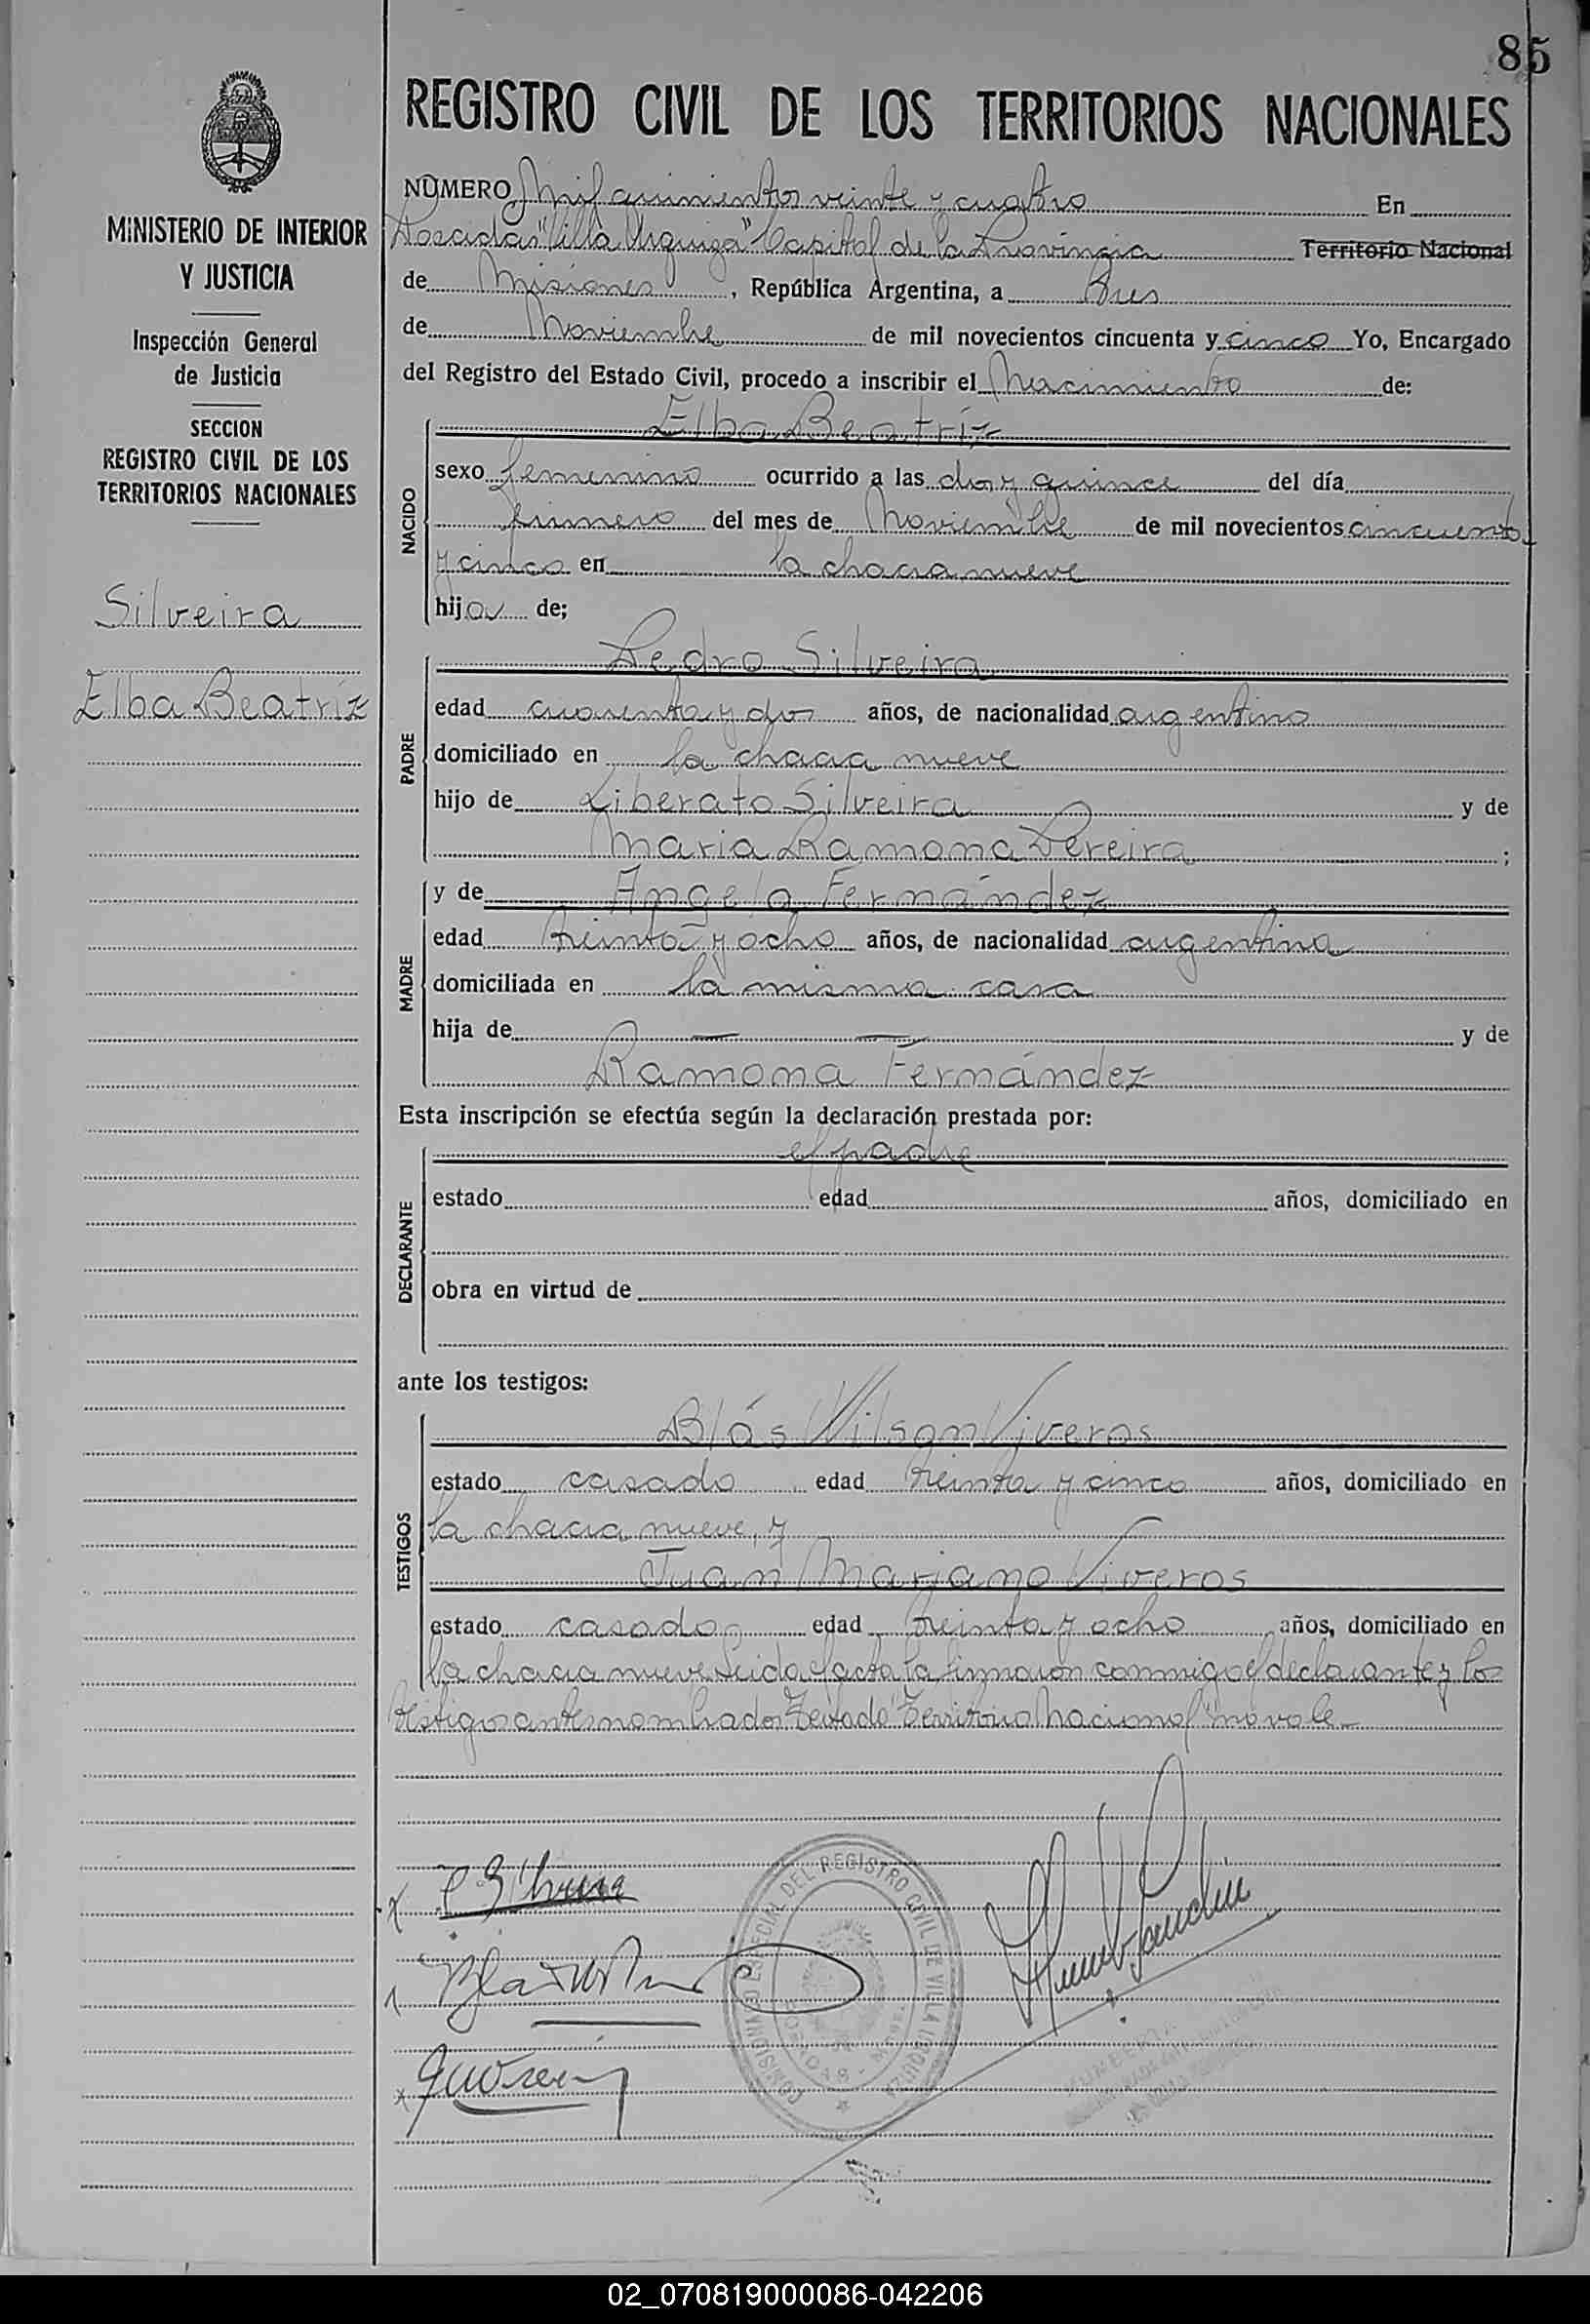 85
REGISTRO CIVIL DE LOS TERRITORIOS NACIONALES
MINISTERIO DE INTERIOR
Y JUSTICIA
Inspección General
de Justicia
SECCION
REGISTRO CIVIL DE LOS
TERRITORIOS NACIONALES
Silveira
Elba Beatríz
NÚMERO Mil quinientos veinte y cuatro En
Posadas "Villa Urquiza" Capital de la Provincia Territorio Nacional
de Misiones, República Argentina, a tres
de Noviembre de mil novecientos cincuenta y cinco Yo, Encargado
del Registro del Estado Civil, procedo a inscribir el Nacimiento de:
NACIDO
Elba Beatríz
sexo femenino ocurrido a las dos y quince del día
primero del mes de Noviembre de mil novecientos cincuenta
y cinco en la chacra nueve
hija de;
PADRE
Pedro Silveira
edad cuarenta y dos años, de nacionalidad argentino
domiciliado en la chacra nueve
hijo de Liberato Silveira y de
Maria Ramona Pereira ;
MADRE
y de Angela Fernández
edad treinta y ocho años, de nacionalidad argentina
domiciliada en la misma casa
hija de — — y de
Ramona Fernández
Esta inscripción se efectúa según la declaración prestada por:
DECLARANTE
el padre
estado edad años, domiciliado en
obra en virtud de
ante los testigos:
TESTIGOS
Blás Wilson Viveros
estado casado edad treinta y cinco años, domiciliado en
la chacra nueve, y
Juan Mariano Viveros
estado casado edad treinta y ocho años, domiciliado en
la chacra nueve. Leida el acta la firmaron conmigo el declarante y los
testigos antes nombrados. Testado "Territorio Nacional" no vale.
COMISIONADO ESPECIAL DEL REGISTRO CIVIL DE VILLA URQUIZA
02_070819000086-042206